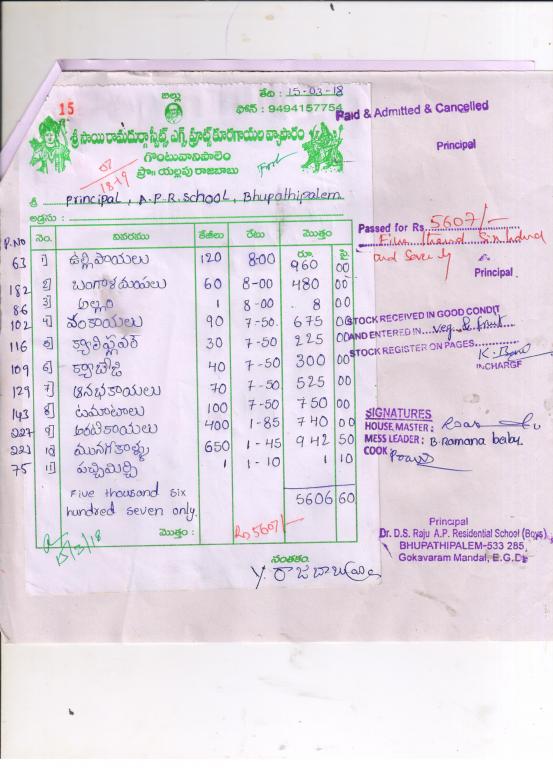 15
బిల్లు
తేది : 15-03-18
ఫోన్ : 9494157754
శ్రీ సాయి రామదుర్గా స్వీట్స్ ఎగ్స్ ఫ్రూట్స్ కూరగాయల వ్యాపారం
గొంటువానిపాలెం
ప్రొ॥ యల్లపు రాజబాబు
శ్రీ Principal, A.P.R. School, Bhupathipalem
అడ్రసు :
P.NO నెం. వివరము కేజీలు రేటు మొత్తం
రూ. పై.
63 1) ఉల్లిపాయలు 120 8-00 960 00
182 2) బంగాళదుంపలు 60 8-00 480 00
86 3) అల్లం 1 8-00 8 00
102 4) వంకాయలు 90 7-50 675 00
116 5) క్యాలిఫ్లవర్ 30 7-50 225 00
109 6) క్యాబేజి 40 7-50 300 00
129 7) ఆనబకాయలు 70 7-50 525 00
143 8) టమాటాలు 100 7-50 750 00
227 9) అరటికాయలు 400 1-85 740 00
221 10) మునగకాళ్ళు 650 1-45 942 50
75 11) పచ్చిమిర్చి 1 1-10 1 10
Five thousand six 5606 60
hundred seven only.
మొత్తం : Rs 5607/-
15/3/18
సంతకం.
Y. రాజబాబు
Paid & Admitted & Cancelled
Principal
Passed for Rs. 5607/-
Five thousand Six hundred
and Seven only
Principal
STOCK RECEIVED IN GOOD CONDIT
AND ENTERED IN.... Veg & fruit
STOCK REGISTER ON PAGES
INCHARGE
SIGNATURES
HOUSE MASTER :
MESS LEADER : B. Ramana baby
COOK
Principal
Dr. D.S. Raju A.P. Residential School (Boys)
BHUPATHIPALEM-533 285,
Gokavaram Mandal, E.G.Dt